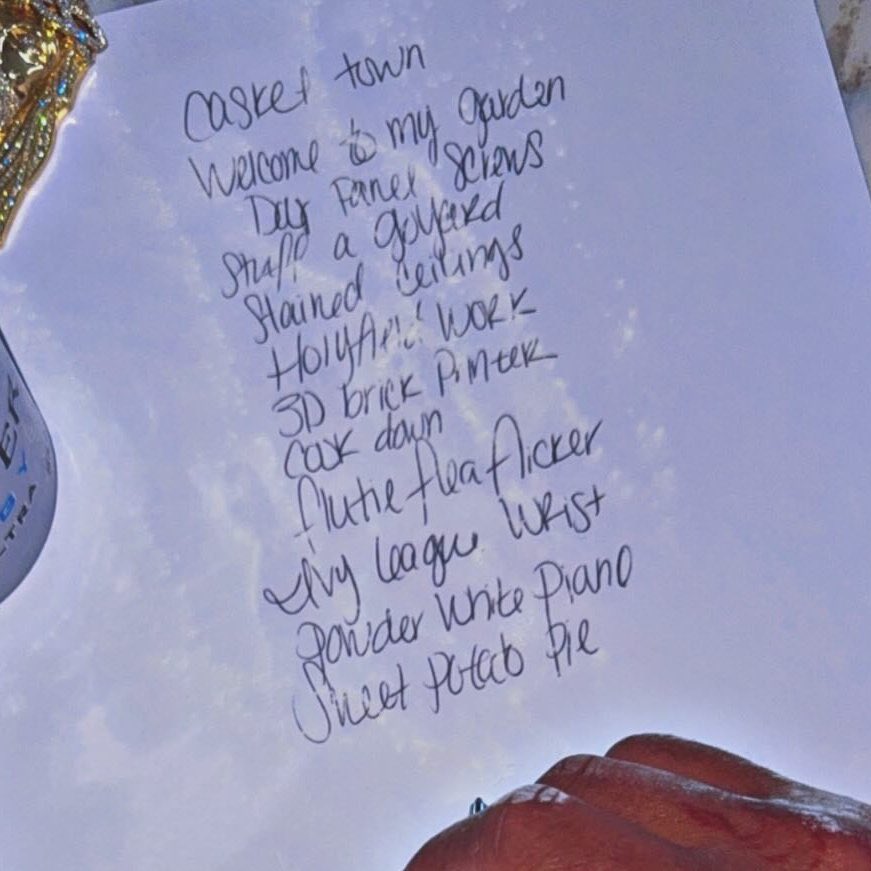 Casket town
Welcome to my garden
Day Panel Screws
Stuff a goyard
Stained Ceilings
Holyfield Work
3D brick Printer
Cook down
flutie flea flicker
Ivy League Wrist
Powder White Piano
Sweet Potato Pie
ER
BY
LTRA